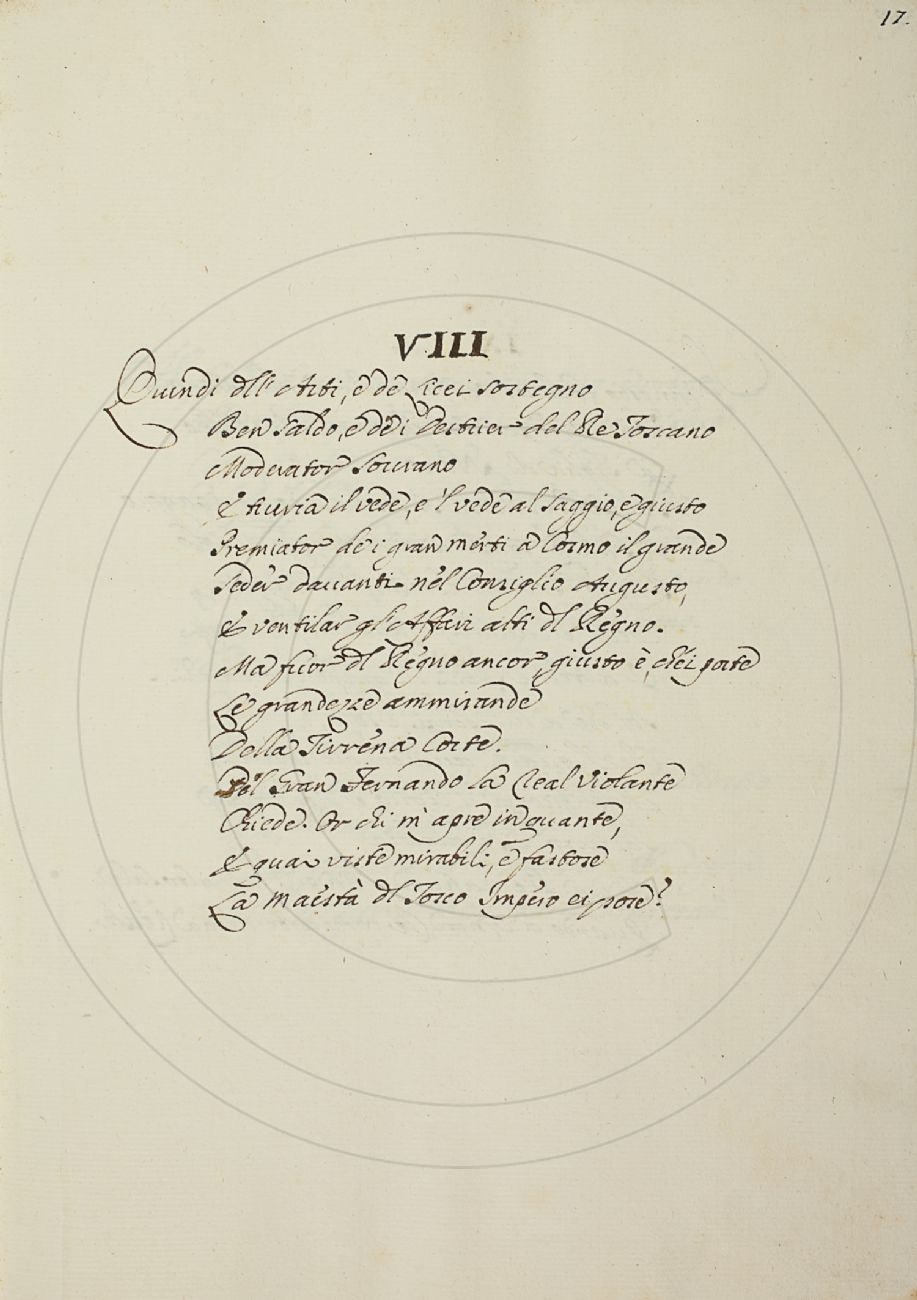 17.
VIII
Quindi dll' Arti, e de Licei sostegno
Ben saldo, e de i Destrier del Re Toscano
Moderator Sourano
Etruria il vede, e 'l vede al saggio, e giusto
Premiator de i gran merti a Cosmo il grande
Seder dauanti nel Consiglio Augusto,
E ventilar gl' Affari alti dl Regno.
Ma fuor dl Regno ancor, giusto è, ch'ei porte
Le grandezze ammirande
Della Tirrena Corte.
Pel Gran Fernando la Real Violante
Chiede. Or chi m' apre in quante,
E quai viste mirabili, e fastose
La maestà dl Tosco Impero ei pose?